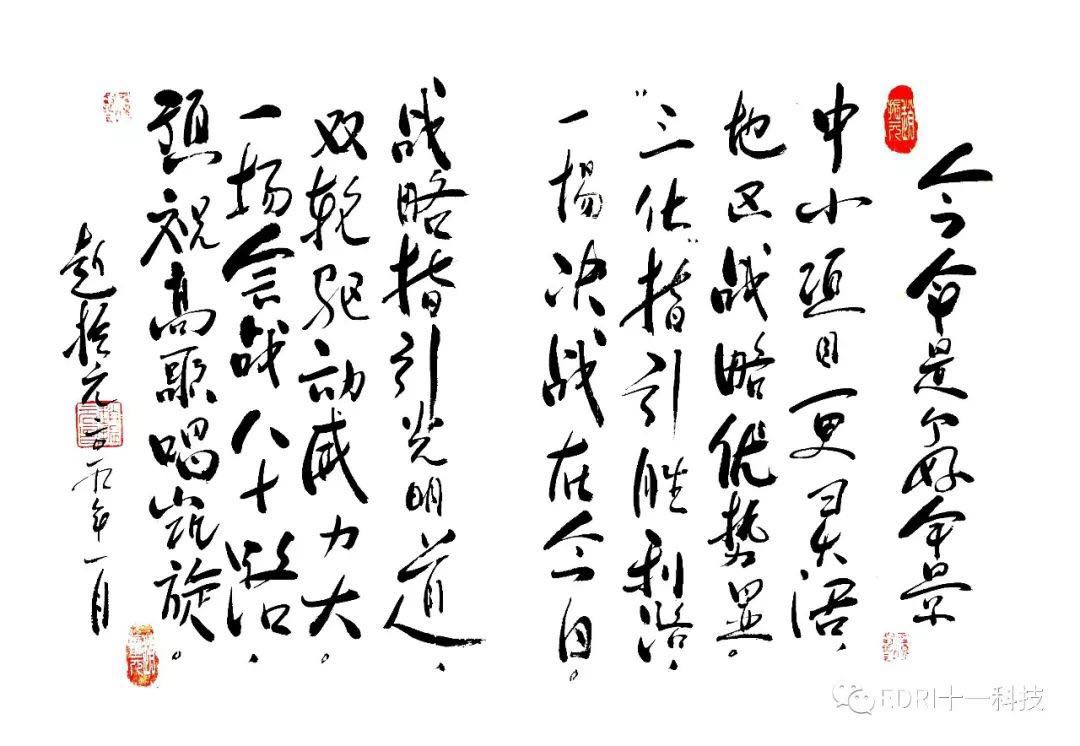 今年是个好年景
中小项目更灵活、
地区战略优势显。
“三化”指引胜利路、
一场决战在今日。
战略指引光明道、
双轮驱动威力大。
一场会战八十路、
预祝高歌唱凯旋。
赵振元二〇一九年一月
EDRI十一科技